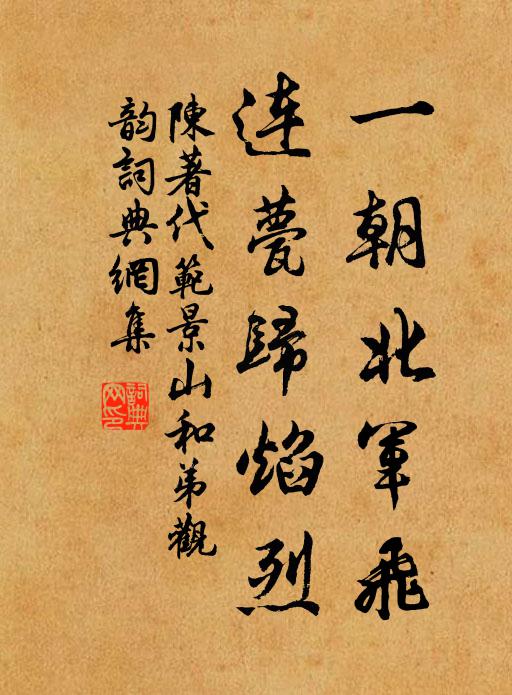 一朝北軍飛
連甍歸焰烈
陳著代範景山和弟觀
韵詞典網集
詞典
网印